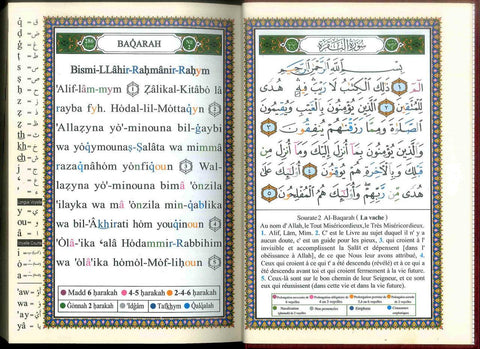 BAQARAH
Bismi-LLâhir-Raḥmânir-Raḥym
'Alif-lâm-mym ① Ẓâlikal-Kitâbô lâ
rayba fyh. Hódal-lil-Móttaqyn ②
'Allaẓyna yò'-minouna bil-ġaybi
wa yóqymounaṣ-Ṣalâta wa mimmâ
razaqnâhóm yónfiqoun ③ Wal-
laẓyna yò'minouna bimâ 'ónzila
'ilayka wa mâ 'ónzila min-qablika
wa bil-'Âkhirati hóm youqinoun ④
'Òlâ-'ika 'alâ Hódammir-Rabbihim
wa 'olâ'ika hómòl-Móf-liḥoun ⑤
Madd 6 ḥarakah
4-5 ḥarakah
2-4-6 ḥarakah
Ġonnah 2 ḥarakah
'Idġâm
Tafkhym
Qalqalah
سورة البقرة
بِسْمِ ٱللَّهِ ٱلرَّحْمَٰنِ ٱلرَّحِيمِ
الٓمٓ ١ ذَٰلِكَ ٱلْكِتَٰبُ لَا رَيْبَ فِيهِ هُدًى
لِّلْمُتَّقِينَ ٢ ٱلَّذِينَ يُؤْمِنُونَ بِٱلْغَيْبِ وَيُقِيمُونَ
ٱلصَّلَوٰةَ وَمِمَّا رَزَقْنَٰهُمْ يُنفِقُونَ ٣
وَٱلَّذِينَ يُؤْمِنُونَ بِمَآ أُنزِلَ إِلَيْكَ وَمَآ أُنزِلَ مِن
قَبْلِكَ وَبِٱلْءَاخِرَةِ هُمْ يُوقِنُونَ ٤ أُو۟لَٰٓئِكَ عَلَىٰ
هُدًى مِّن رَّبِّهِمْ وَأُو۟لَٰٓئِكَ هُمُ ٱلْمُفْلِحُونَ ٥
Sourate 2 Al-Baqarah ( La vache )
Au nom d' Allah, le Tout Miséricordieux, le Très Miséricordieux.
1. Alif, Lâm, Mim. 2. C' est le Livre au sujet duquel il n' y a
aucun doute, c' est un guide pour les pieux, 3. qui croient à
l' invisible et accomplissent la Salât et dépensent [dans l'
obéissance à Allah], de ce que Nous leur avons attribué, 4.
Ceux qui croient à ce qui t' a été descendu (révélé) et à ce qui a
été descendu avant toi et qui croient fermement à la vie future.
5. Ceux-là sont sur le bon chemin de leur Seigneur, et ce sont
eux qui réussissent (dans cette vie et dans la vie future).